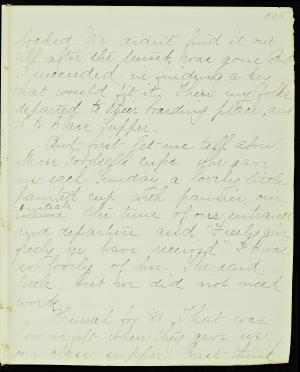 locked. We didn't find it out
till after the trunk was gone. But
I succeeded in finding a key
that would fit it. Then my folks
departed to their boarding place, and
I to Class Supper.
But first let me tell about
Miss cups. She gave
us each Sunday a lovely little
painted cup with pansies, our
the time of our entrance
and departure and "Freely give
freely ye have received". It was
so lovely of her. She said
little, but we did not need
words.
"Hurrah for " That was
how we felt when they gave us
our class supper. Just think